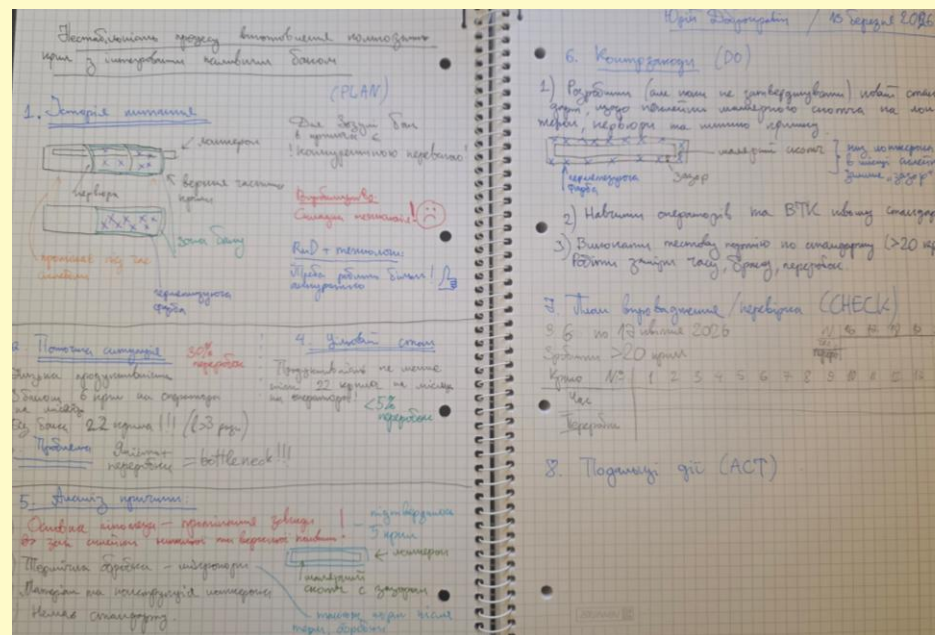 Нестабільність процесу виготовлення композитних
крил з інтегрованим паливним баком
(PLAN)
1. Історія питання
лонжерон
нервюри
верхня частина
крила
зона баку
протікає під час
склейки
герметизуюча
фарба
Для Бак
в крилі є
! конкурентною перевагою!
Виробництво:
Складна технологія!
RnD + технологи:
Треба робити більш
акуратно!
2. Поточна ситуація
30%
переробок
Низька продуктивність
З баком 6 крил на оператора
на місяць
Без баку 22 крила !!! (>3 рази)
Проблема
Якість +
переробки = bottleneck!!!
4. Цільовий стан
Продуктивність не менше
ніж 22 крила на місяць
на оператора!
<5%
переробок
5. Аналіз причин:
Основна гіпотеза – протікання завжди
в зоні склейки нижньої та верхньої
підтвердили
5 крил
Термічна обробка – мікропори
Матеріал та конструкція лонжерона
Немає стандарту.
лонжерон
малярний
скотч с зазором
після
терм. обробки
Юрій / 15 березня 2026
6. Контрзаходи (DO)
1) Розробити (але поки не затверджувати) новий стан-
дарт, щодо поклейки малярного скотча на лон-
жерон, нервюри та нижню кришку.
малярний скотч
зазор
герметизуюча
фарба
під лонжерон
в місці склейки
залишає "зазор"
2) Навчити операторів та ВТК новому стандарту
3) Виконати тестову партію по стандарту (>20 крил)
Робити заміри часу, браку, переробок.
7. План впровадження / перевірка (CHECK)
З 6 по 17 квітня 2026
Зробити >20 крил
Крило №? 1 2 3 4 5 6 7 8 9 10 11 12
Час
Переробка
8. Подальші дії (ACT)